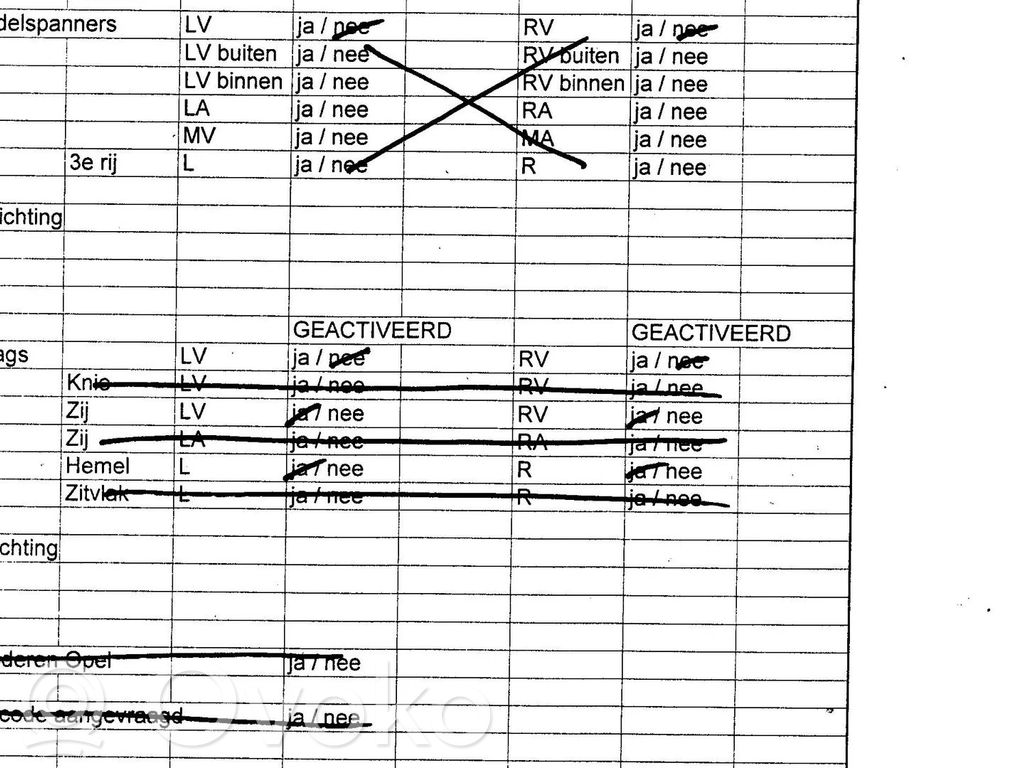 delspanners LV ja / nee RV ja / nee
LV buiten ja / nee RV buiten ja / nee
LV binnen ja / nee RV binnen ja / nee
LA ja / nee RA ja / nee
MV ja / nee MA ja / nee
3e rij L ja / nee R ja / nee
ichting
GEACTIVEERD GEACTIVEERD
ags LV ja / nee RV ja / nee
Knie LV ja / nee RV ja / nee
Zij LV ja / nee RV ja / nee
Zij LA ja / nee RA ja / nee
Hemel L ja / nee R ja / nee
Zitvlak L ja / nee R ja / nee
chting
deren Opel ja / nee
code aangevraagd ja / nee
Ovoko